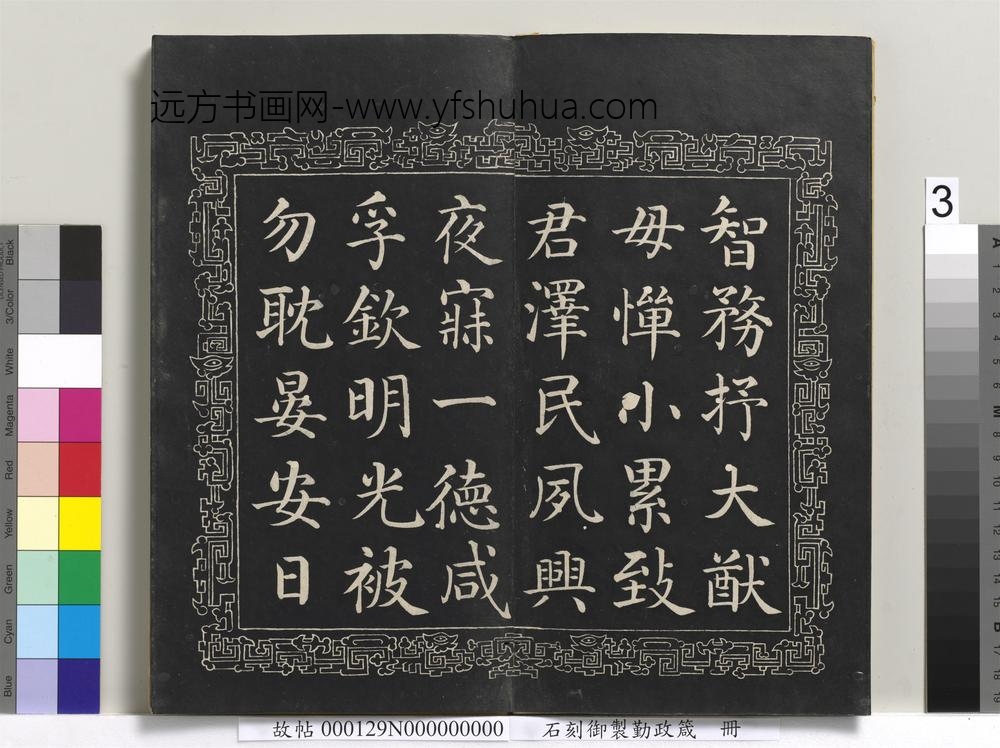 远方书画网-www.yfshuhua.com
智務抒大猷
毋憚小累致
君澤民夙興
夜寐一德咸
孚欽明光被
勿耽晏安日
3
Black
3/Color
White
Magenta
Red
Yellow
Green
Cyan
Blue
A
1
2
3
4
5
6
M
8
9
10
11
12
13
14
15
B
17
18
19
故帖 000129N000000000 石刻御製勤政箴 冊